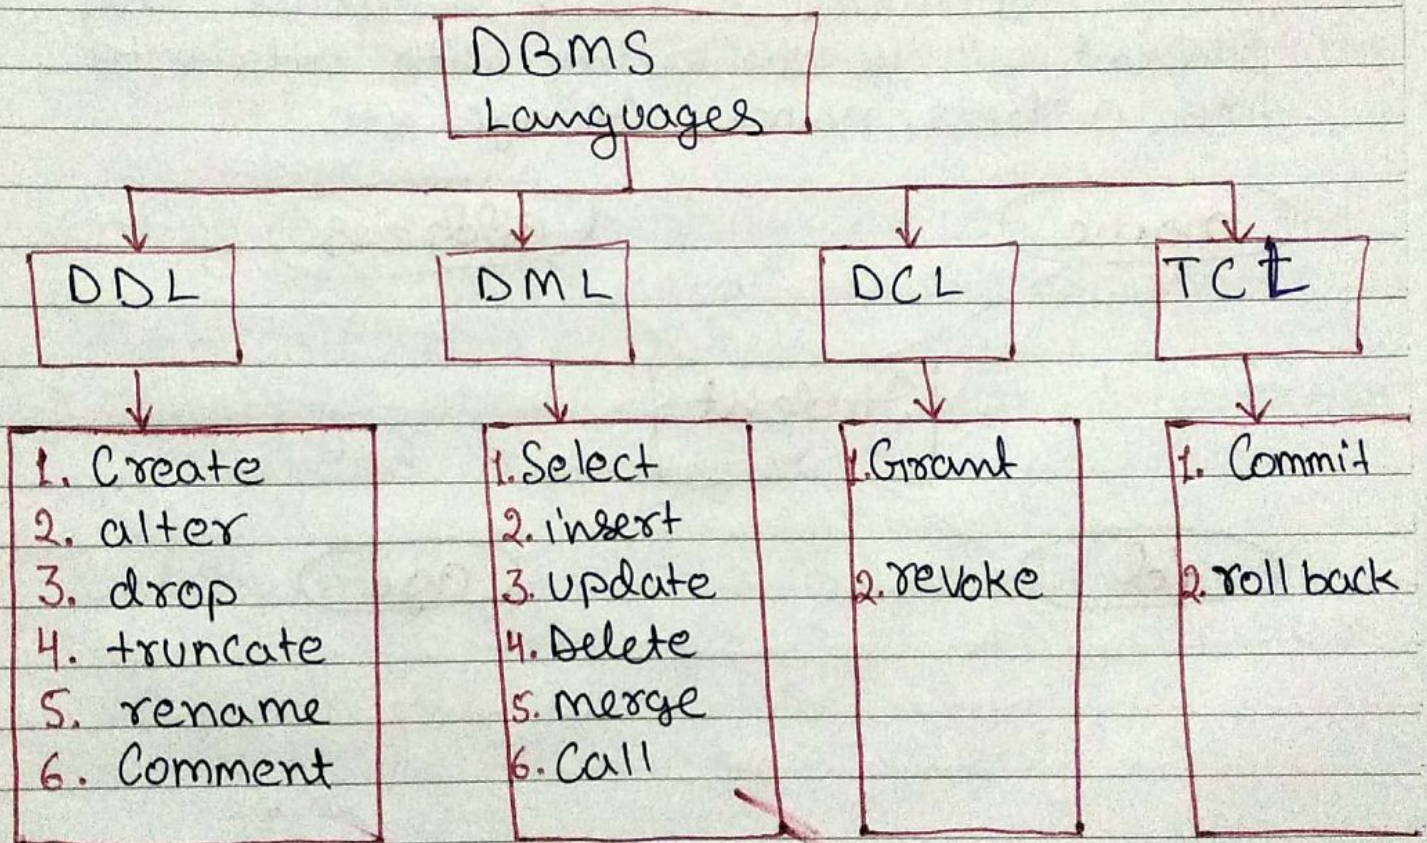 DBMS
Languages
DDL
DML
DCL
TCL
1. Create
2. alter
3. drop
4. truncate
5. rename
6. Comment
1. Select
2. insert
3. update
4. Delete
5. merge
6. Call
1. Grant
2. revoke
1. Commit
2. roll back